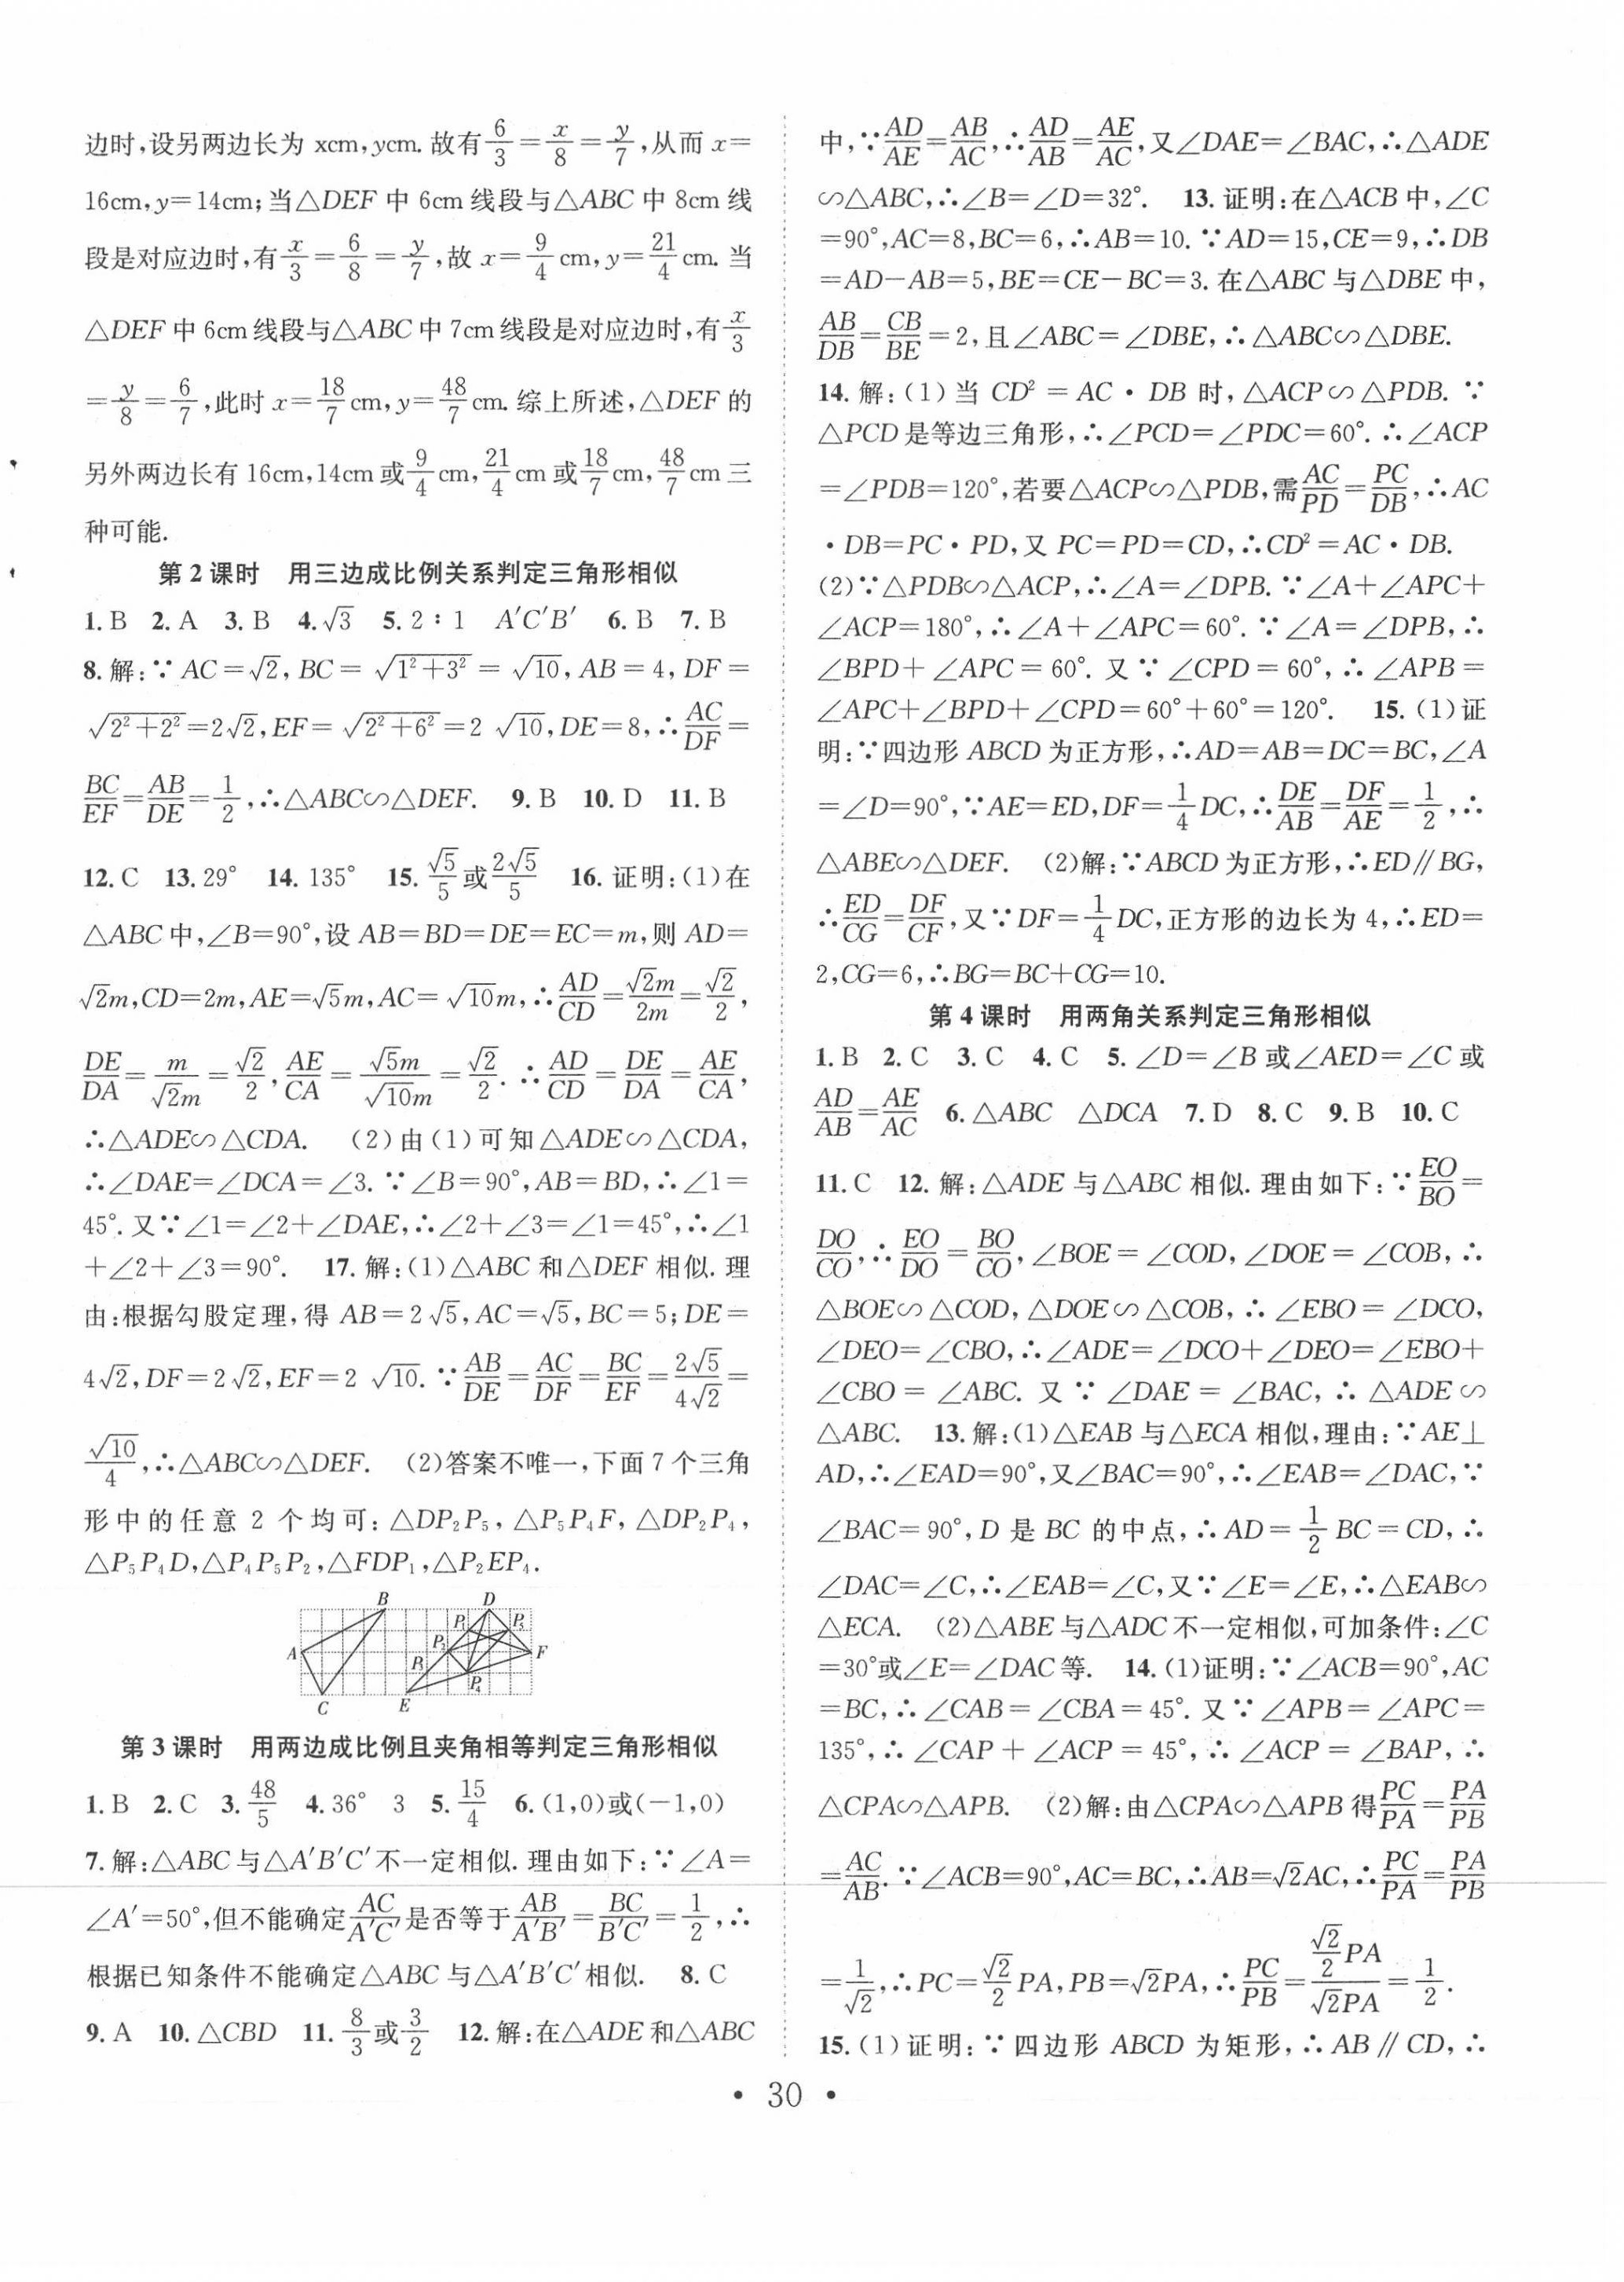 边时,设另两边长为 xcm,ycm. 故有6/3=x/8=y/7,从而 x=
16cm,y=14cm;当△DEF 中 6cm 线段与△ABC 中 8cm 线
段是对应边时,有x/3=6/8=y/7,故 x=9/4cm,y=21/4cm. 当
△DEF 中 6cm 线段与△ABC 中 7cm 线段是对应边时,有x/3
=y/8=6/7,此时 x=18/7cm,y=48/7cm. 综上所述,△DEF 的
另外两边长有 16cm,14cm 或9/4cm,21/4cm 或18/7cm,48/7cm 三
种可能.
第 2 课时 用三边成比例关系判定三角形相似
1. B 2. A 3. B 4. √3 5. 2∶1 A′C′B′ 6. B 7. B
8. 解:∵AC=√2,BC=√(1²+3²)=√10,AB=4,DF=
√(2²+2²)=2√2,EF=√(2²+6²)=2√10,DE=8,∴AC/DF=
BC/EF=AB/DE=1/2,∴△ABC∽△DEF. 9. B 10. D 11. B
12. C 13. 29° 14. 135° 15. √5/5或2√5/5 16. 证明:(1)在
△ABC 中,∠B=90°,设 AB=BD=DE=EC=m,则 AD=
√2m,CD=2m,AE=√5m,AC=√10m,∴AD/CD=√2m/2m=√2/2,
DE/DA=m/√2m=√2/2,AE/CA=√5m/√10m=√2/2. ∴AD/CD=DE/DA=AE/CA,
∴△ADE∽△CDA. (2)由(1)可知△ADE∽△CDA,
∴∠DAE=∠DCA=∠3. ∵∠B=90°,AB=BD,∴∠1=
45°. 又∵∠1=∠2+∠DAE,∴∠2+∠3=∠1=45°,∴∠1
+∠2+∠3=90°. 17. 解:(1)△ABC 和△DEF 相似. 理
由:根据勾股定理,得 AB=2√5,AC=√5,BC=5;DE=
4√2,DF=2√2,EF=2√10. ∵AB/DE=AC/DF=BC/EF=2√5/4√2=
√10/4,∴△ABC∽△DEF. (2)答案不唯一,下面 7 个三角
形中的任意 2 个均可:△DP₂P₅,△P₅P₄F,△DP₂P₄,
△P₅P₄D,△P₄P₅P₂,△FDP₁,△P₂EP₄.
B D
P₁ P₅
A P₂ F
P₃
P₄
C E
第 3 课时 用两边成比例且夹角相等判定三角形相似
1. B 2. C 3. 48/5 4. 36° 3 5. 15/4 6. (1,0)或(−1,0)
7. 解:△ABC 与△A′B′C′不一定相似. 理由如下:∵∠A=
∠A′=50°,但不能确定AC/A′C′是否等于AB/A′B′=BC/B′C′=1/2,∴
根据已知条件不能确定△ABC 与△A′B′C′相似. 8. C
9. A 10. △CBD 11. 8/3或3/2 12. 解:在△ADE 和△ABC
中,∵AD/AE=AB/AC,∴AD/AB=AE/AC,又∠DAE=∠BAC,∴△ADE
∽△ABC,∴∠B=∠D=32°. 13. 证明:在△ACB 中,∠C
=90°,AC=8,BC=6,∴AB=10. ∵AD=15,CE=9,∴DB
=AD−AB=5,BE=CE−BC=3. 在△ABC 与△DBE 中,
AB/DB=CB/BE=2,且∠ABC=∠DBE,∴△ABC∽△DBE.
14. 解:(1)当 CD²=AC·DB 时,△ACP∽△PDB. ∵
△PCD 是等边三角形,∴∠PCD=∠PDC=60°. ∴∠ACP
=∠PDB=120°,若要△ACP∽△PDB,需AC/PD=PC/DB,∴AC
·DB=PC·PD,又 PC=PD=CD,∴CD²=AC·DB.
(2)∵△PDB∽△ACP,∴∠A=∠DPB. ∵∠A+∠APC+
∠ACP=180°,∴∠A+∠APC=60°. ∵∠A=∠DPB,∴
∠BPD+∠APC=60°. 又∵∠CPD=60°,∴∠APB=
∠APC+∠BPD+∠CPD=60°+60°=120°. 15. (1)证
明:∵四边形 ABCD 为正方形,∴AD=AB=DC=BC,∠A
=∠D=90°,∵AE=ED,DF=1/4DC,∴DE/AB=DF/AE=1/2,∴
△ABE∽△DEF. (2)解:∵ABCD 为正方形,∴ED∥BG,
∴ED/CG=DF/CF,又∵DF=1/4DC,正方形的边长为 4,∴ED=
2,CG=6,∴BG=BC+CG=10.
第 4 课时 用两角关系判定三角形相似
1. B 2. C 3. C 4. C 5. ∠D=∠B 或∠AED=∠C 或
AD/AB=AE/AC 6. △ABC △DCA 7. D 8. C 9. B 10. C
11. C 12. 解:△ADE 与△ABC 相似. 理由如下:∵EO/BO=
DO/CO,∴EO/DO=BO/CO,∠BOE=∠COD,∠DOE=∠COB,∴
△BOE∽△COD,△DOE∽△COB,∴∠EBO=∠DCO,
∠DEO=∠CBO,∴∠ADE=∠DCO+∠DEO=∠EBO+
∠CBO=∠ABC. 又∵∠DAE=∠BAC,∴△ADE∽
△ABC. 13. 解:(1)△EAB 与△ECA 相似,理由:∵AE⊥
AD,∴∠EAD=90°,又∠BAC=90°,∴∠EAB=∠DAC,∵
∠BAC=90°,D 是 BC 的中点,∴AD=1/2BC=CD,∴
∠DAC=∠C,∴∠EAB=∠C,又∵∠E=∠E,∴△EAB∽
△ECA. (2)△ABE 与△ADC 不一定相似,可加条件:∠C
=30°或∠E=∠DAC 等. 14. (1)证明:∵∠ACB=90°,AC
=BC,∴∠CAB=∠CBA=45°. 又∵∠APB=∠APC=
135°,∴∠CAP+∠ACP=45°,∴∠ACP=∠BAP,∴
△CPA∽△APB. (2)解:由△CPA∽△APB 得PC/PA=PA/PB
=AC/AB. ∵∠ACB=90°,AC=BC,∴AB=√2AC,∴PC/PA=PA/PB
=1/√2,∴PC=√2/2PA,PB=√2PA,∴PC/PB=(√2/2PA)/(√2PA)=1/2.
15. (1)证明:∵四边形 ABCD 为矩形,∴AB∥CD,∴
· 30 ·